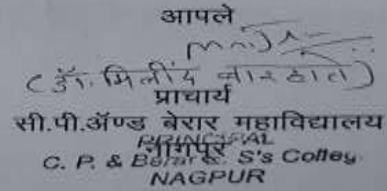 आपले
(डॉ. मिलींद बारहाते)
प्राचार्य
सी.पी.अ‍ॅण्ड बेरार महाविद्यालय
नागपूर
PRINCIPAL
C. P. & Berar E. S's Colleg
NAGPUR